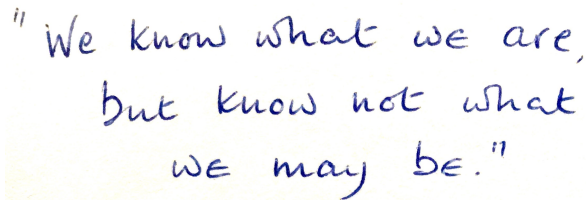 "We know what we are,
but know not what
we may be."